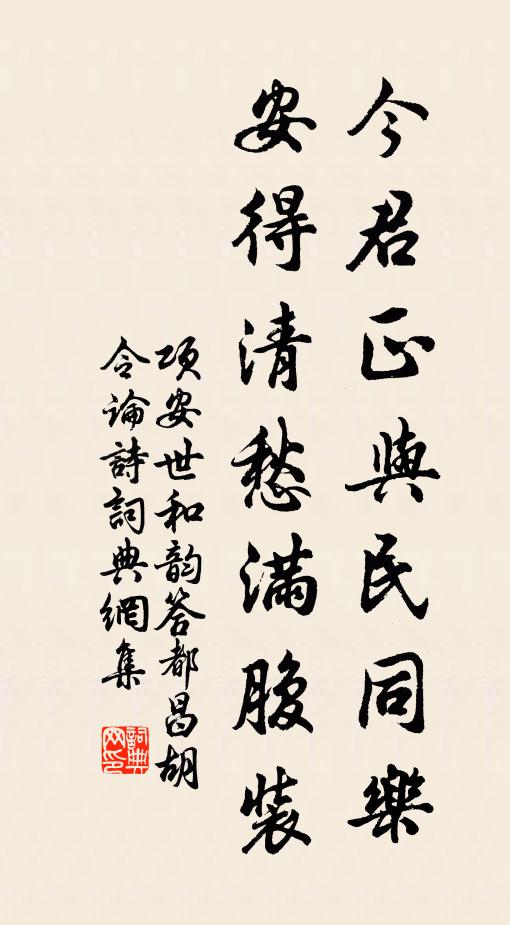 今君正與民同樂
安得清愁滿腹裝
項安世和韵答都昌胡
令論詩詞典網集
詞典网印